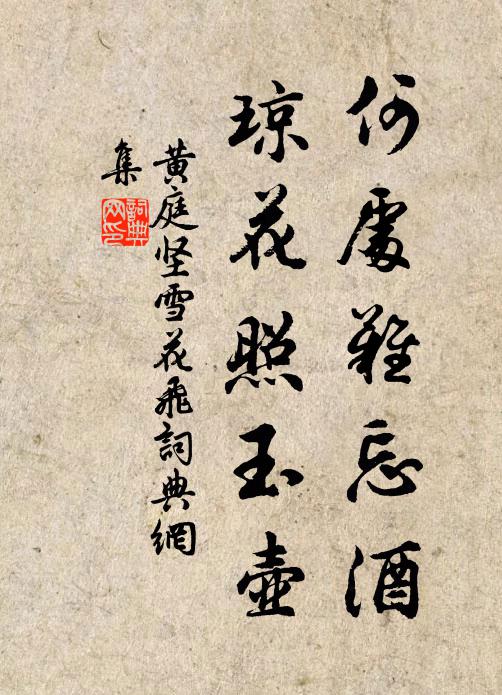 何處難忘酒
琼花照玉壺
黄庭坚雪花飛詞典網
集
詞典网印